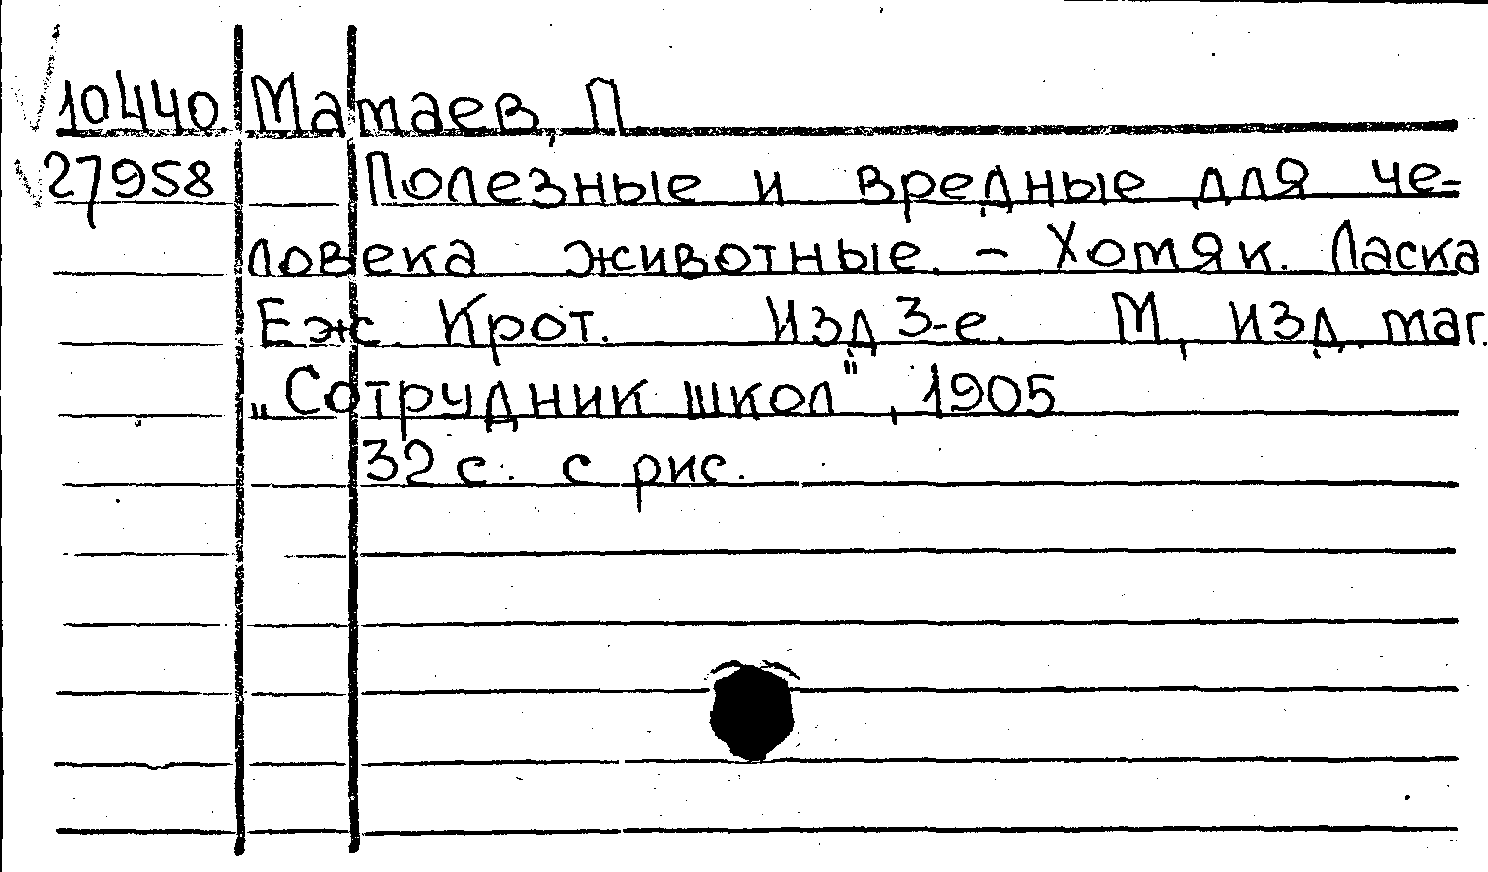 10440 Матаев, П
27958 Полезные и вредные для че-
ловека животные. – Хомяк. Ласка
Еж. Крот. Изд 3-е. М, изд. маг.
„Сотрудник школ", 1905
32 с. с рис.